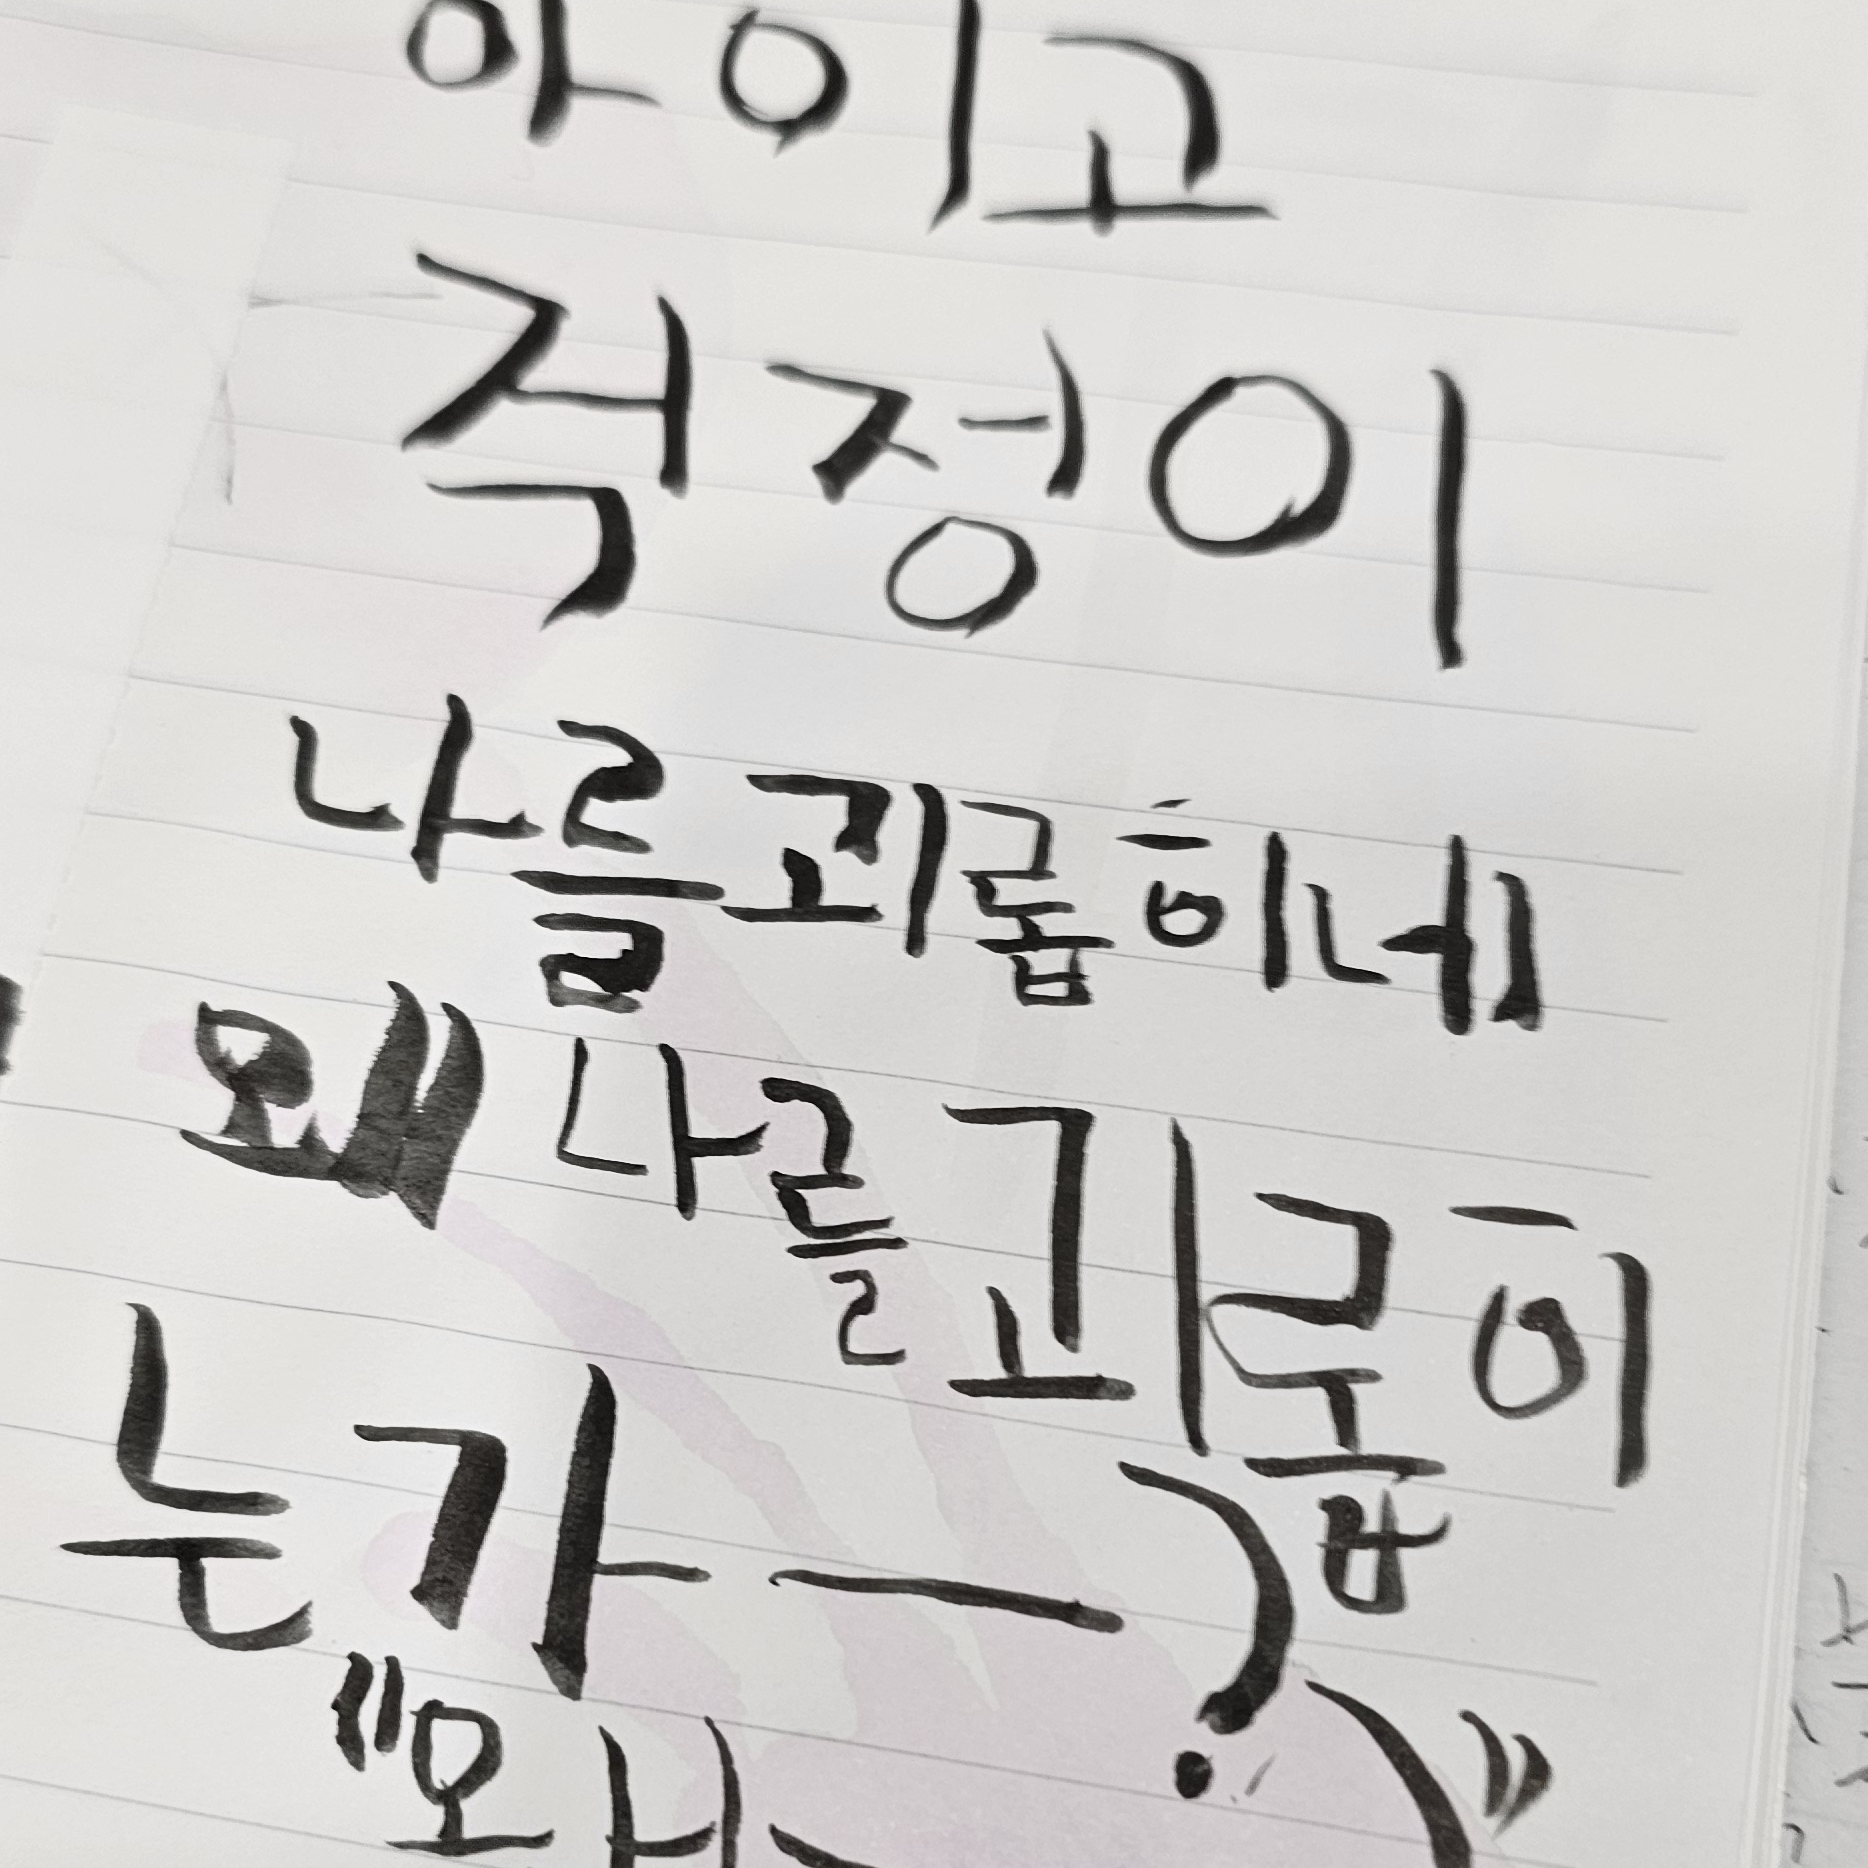 아이고
걱정이
나를괴롭히네
왜 나를 괴롭히
는가 — ?
"왜 — ?"